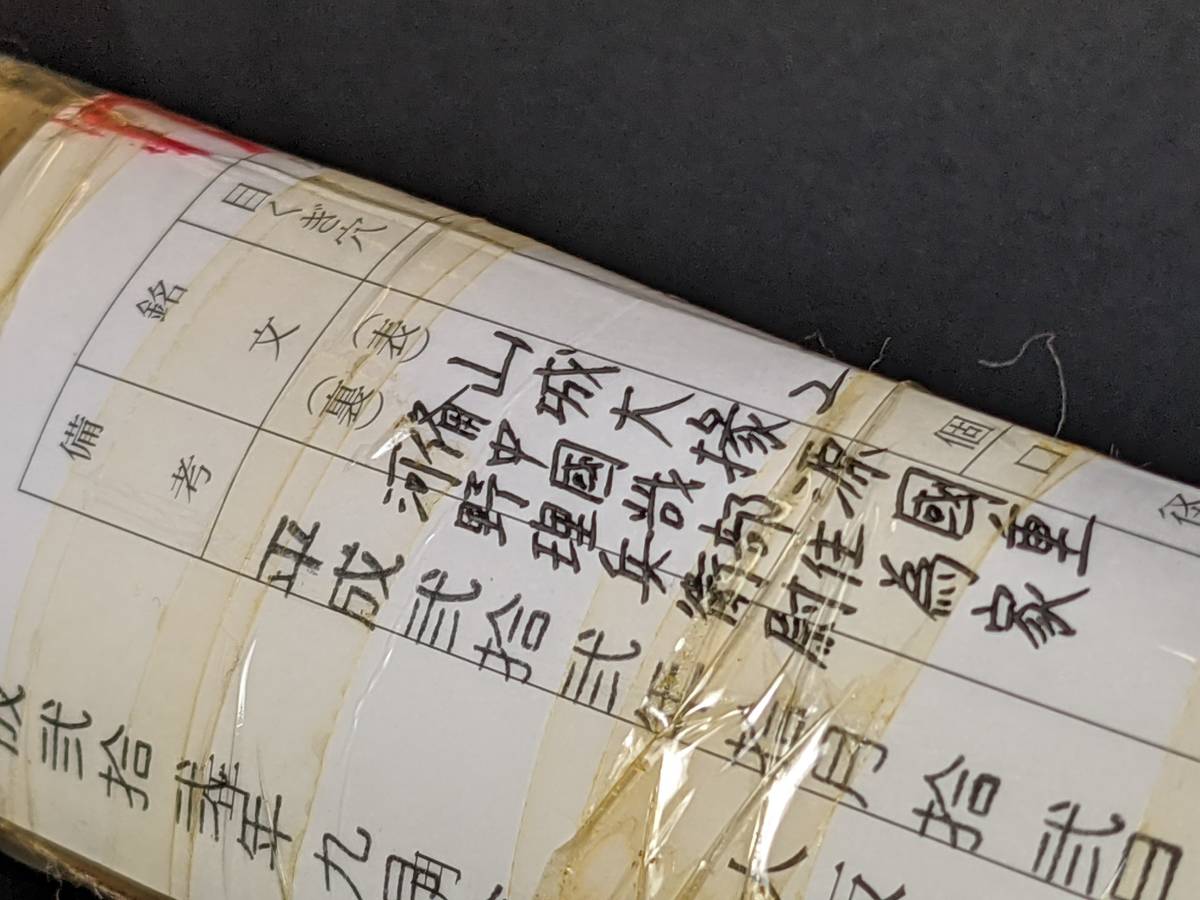 目くぎ穴 2 個
銘文
(表) 山城大掾源國重
(裏) 備中國哉部住
河野理兵衛尉為家
備考
平成弐拾弐年拾月拾弐日
成弐拾年九月